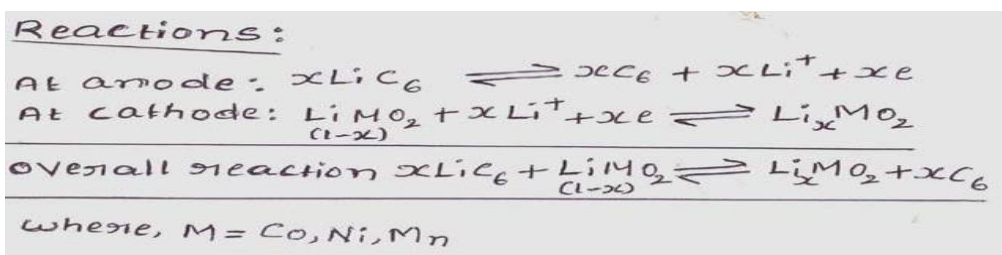 Reactions:
At anode: xLiC₆ ⇌ xC₆ + xLi⁺ + xe
At cathode: Li₍₁₋ₓ₎MO₂ + xLi⁺ + xe ⇌ LiₓMO₂
Overall reaction xLiC₆ + Li₍₁₋ₓ₎MO₂ ⇌ LiₓMO₂ + xC₆
where, M = Co, Ni, Mn